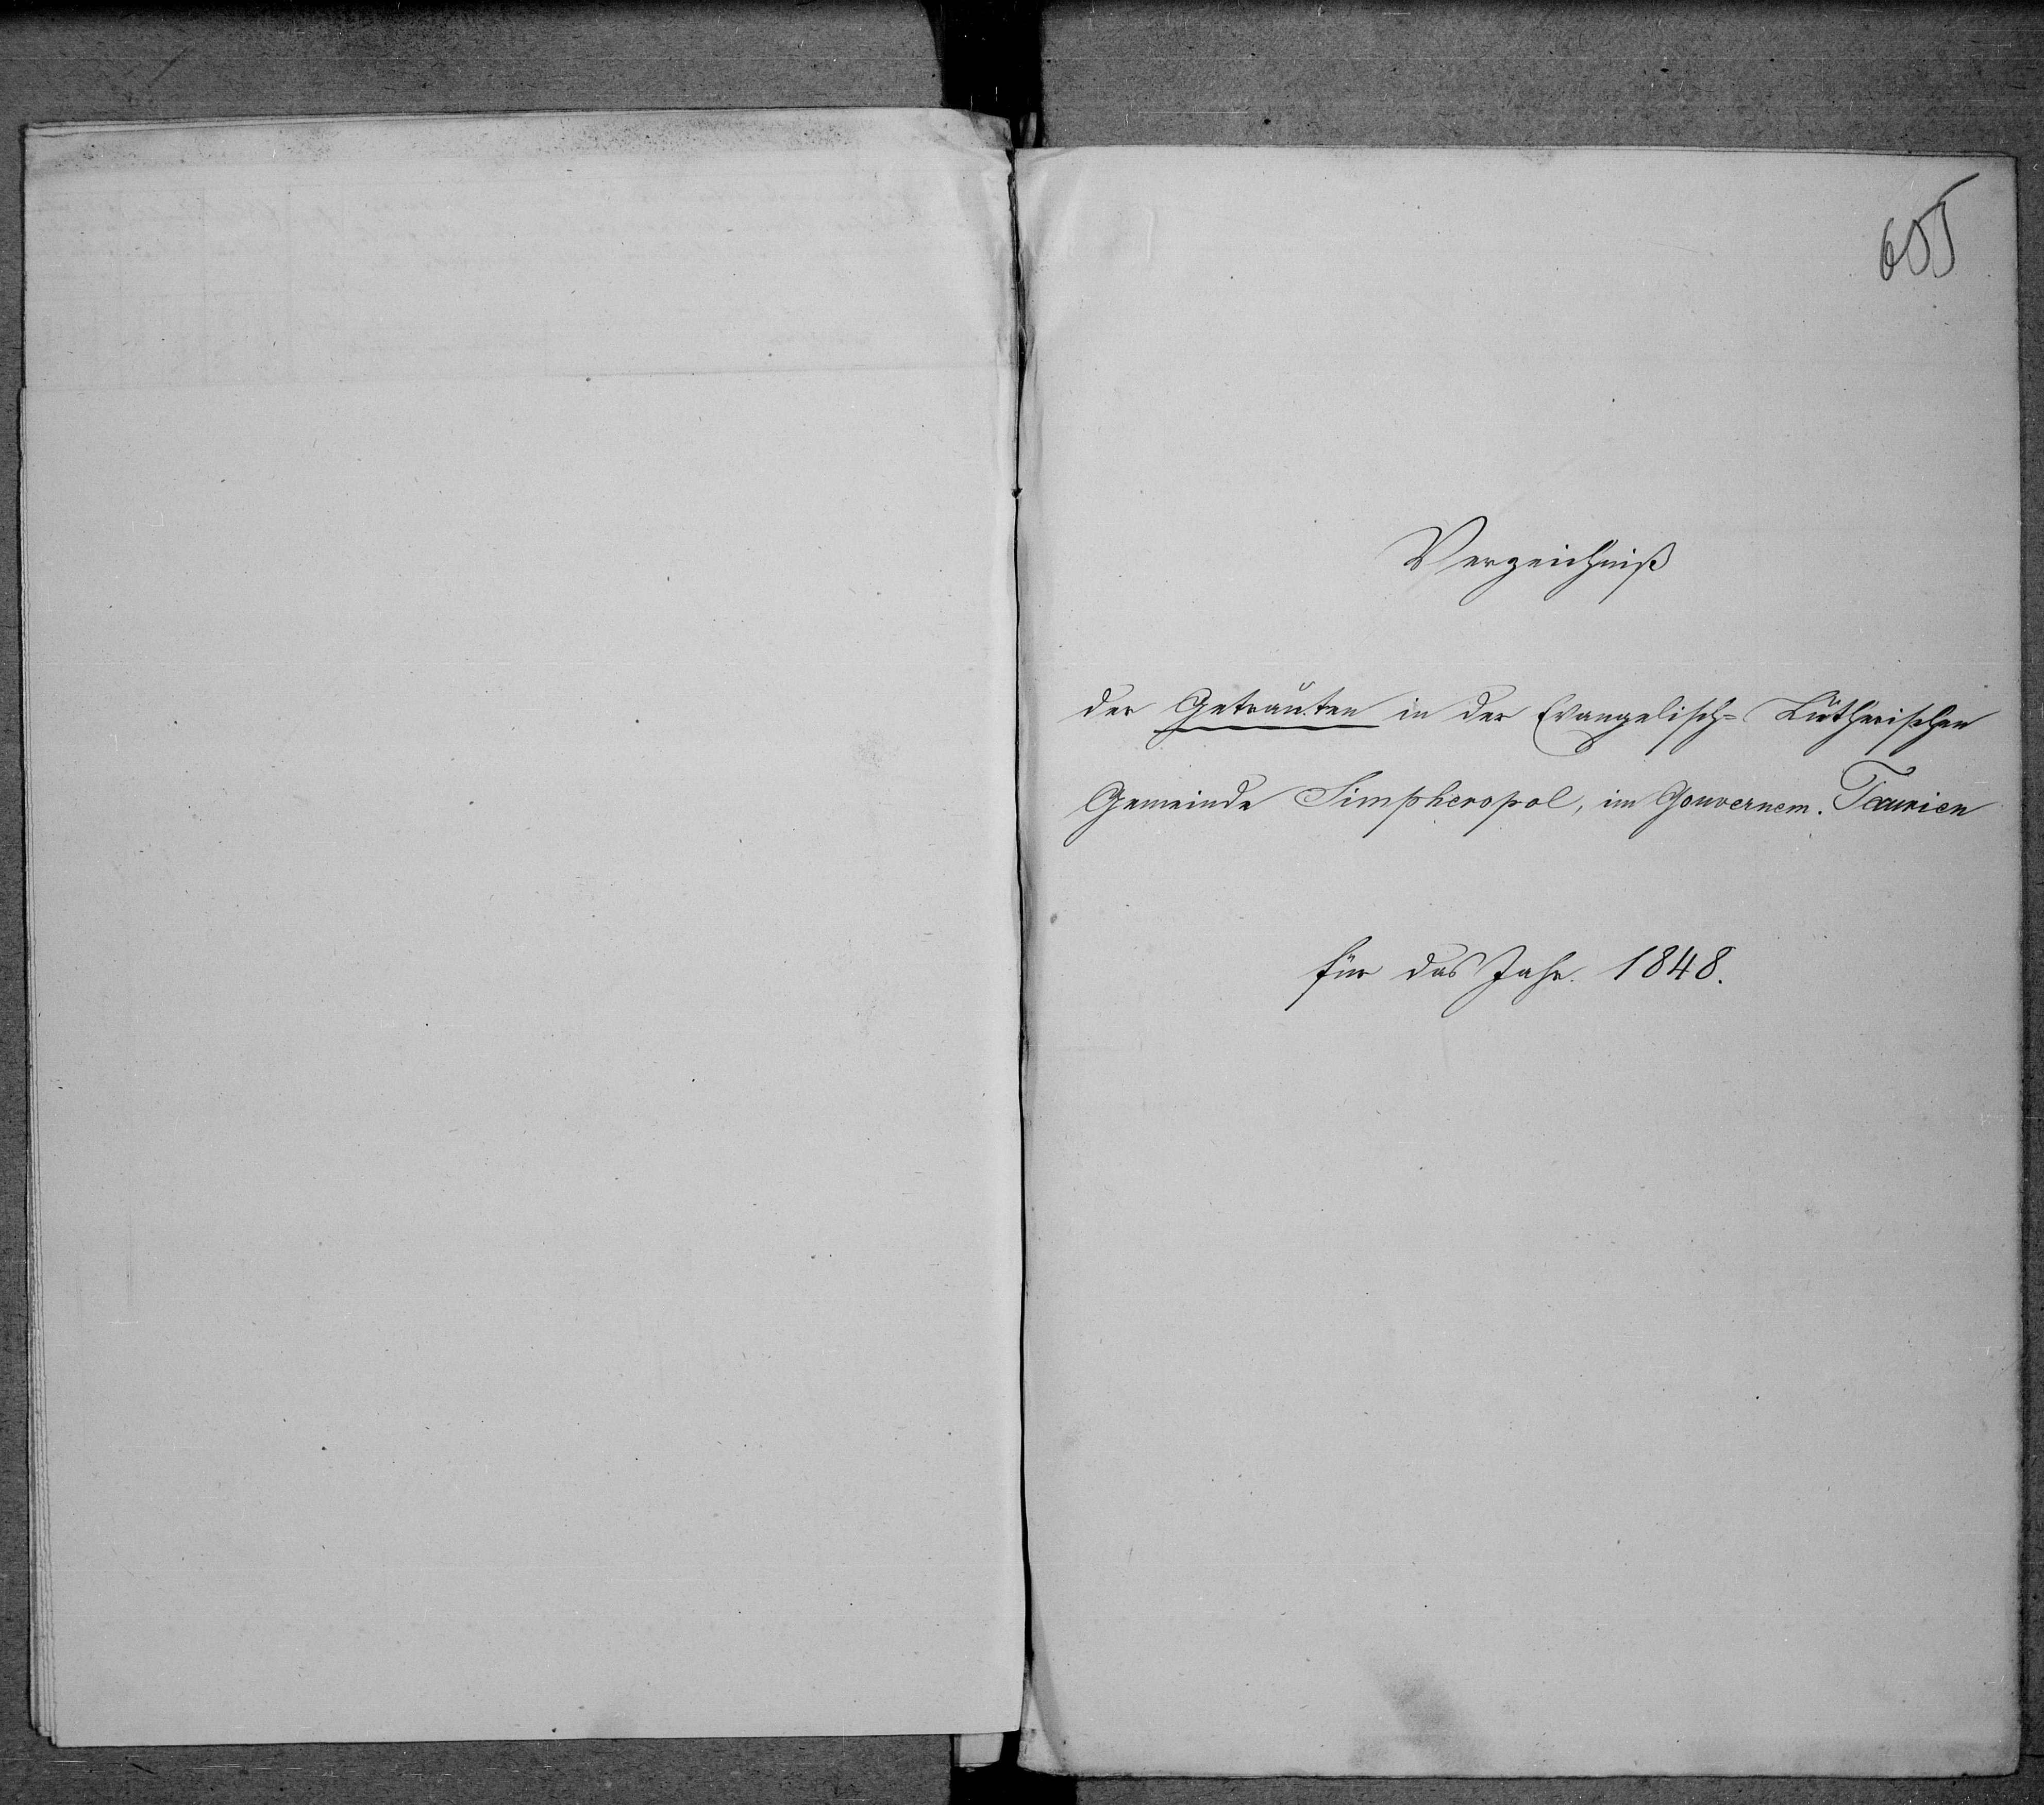 655
Verzeichniß
der Getrauten in der Evangelisch= Lutherischen
Gemeinde Simpheropol, im Gouvernem. Taurien
für das Jahr. 1848.